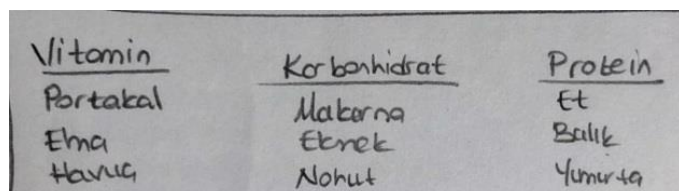 Vitamin Karbonhidrat Protein
Portakal Makarna Et
Elma Ekmek Balık
Havuç Nohut Yumurta